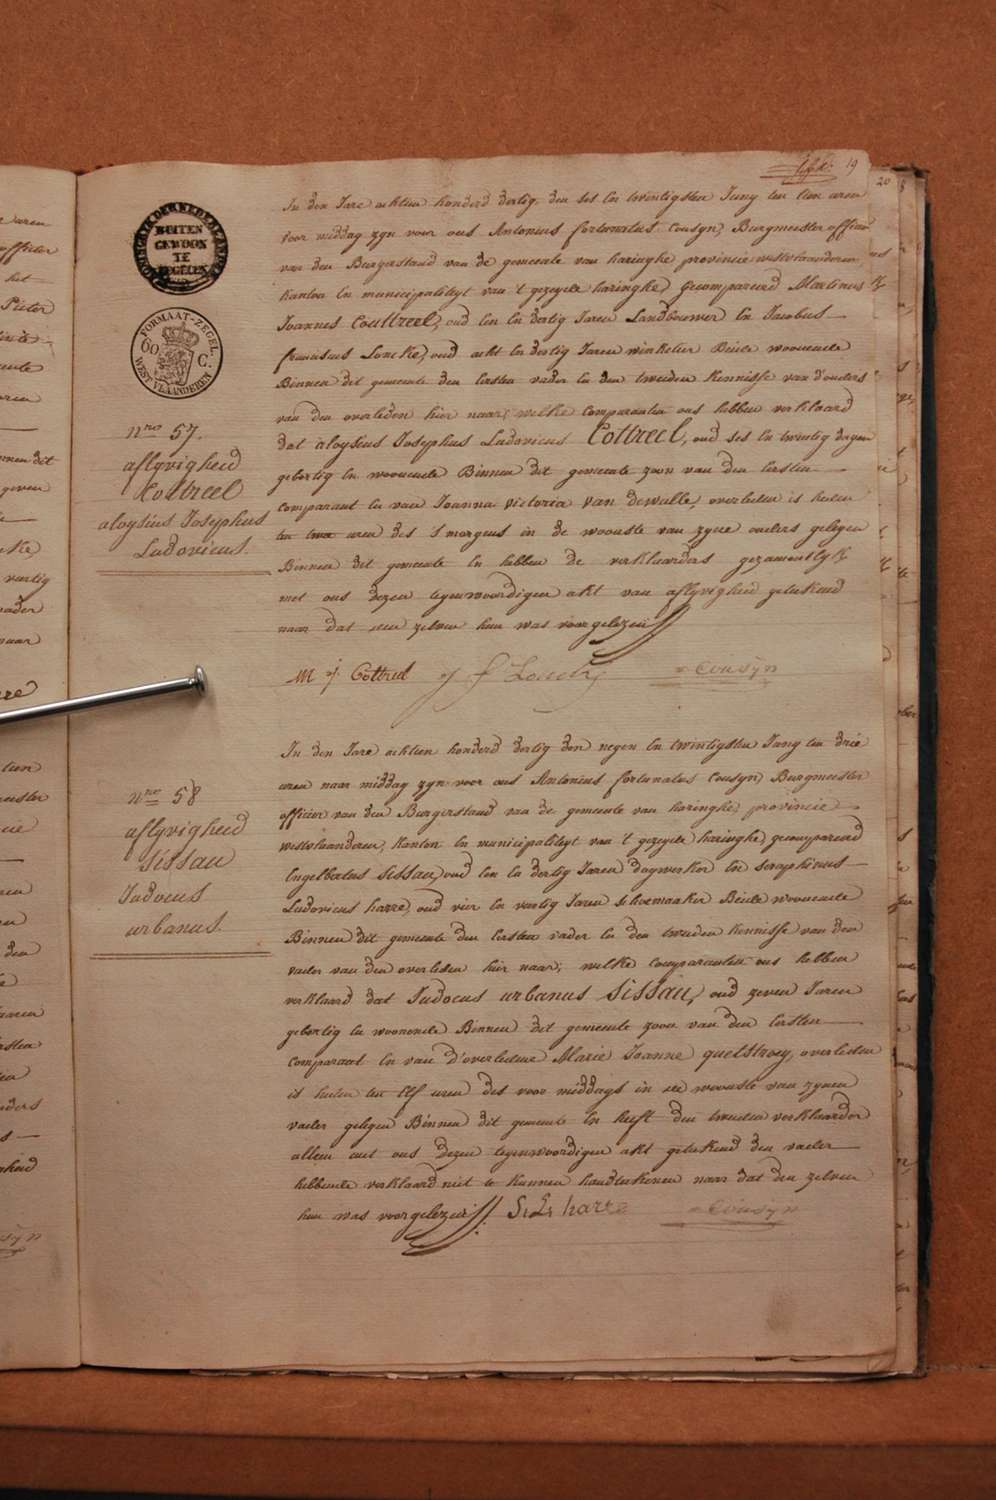 19
20
KONINGRYK DER NEDERLANDEN
BUITEN
GEWOON
TE
ZEGELEN
FORMAAT-ZEGEL
60 C.
WEST VLAANDEREN
nro 57.
aflyvigheid
Cottreel
aloysius Josephus
Ludovicus.
In den Jare achtien honderd dertig, den ses en twintigsten Juny ten tien uren
voor middag zyn voor ons Antonius fortunatus Cousyn, Burgmeister officier
van den Burgerstand van de gemeente van haringhe provincie westvlaanderen
kanton en municipaliteyt van 't gezeyde haringhe, Gecompareerd Martinus
Joannes Couttreel, oud een en dertig Jaren Landbouwer en Jacobus
franciscus Loncke, oud acht en dertig Jaren winkelier Beide woonende
Binnen dit gemeente den eersten vader en den tweeden kennisse van d'ouders
van den overleden hier naar, welke comparanten ons hebben verklaard
dat aloysius Josephus Ludovicus Cottreel, oud ses en twintig dagen
gebortig en woonende Binnen dit gemeente zoon van den eersten
comparant en van Joanna Victoria Van dewalle, overleden is heden
ten twee uren des 's morgens in de woonste van zyne ouders gelegen
Binnen dit gemeente en hebben de verklaarders gezamentlyk
met ons dezen tegenwoordigen akt van aflyvigheid geteekend
naar dat den zelven hun was voorgelezen
M j. Cottreel j f Loncke Cousyn
nro 58
aflyvigheid
Sissau
Judocus
urbanus.
In den Jare achtien honderd dertig den negen en twintigsten Juny ten drie
uren naar middag zyn voor ons Antonius fortunatus Cousyn, Burgmeister
officier van den Burgerstand van de gemeente van haringhe, provincie
westvlaanderen, Kanton en municipaliteyt van 't gezeyde haringhe, gecompareerd
Engelbertus Sissau, oud een en dertig Jaren dagwerker en seraphinus
Ludovicus harre, oud vier en veertig Jaren schoemaaker Beide woonende
Binnen dit gemeente den eersten vader en den tweeden kennisse van den
vader van den overleden hier naar; welke comparanten ons hebben
verklaard dat Judocus urbanus Sissau, oud zeven Jaren
gebortig en woonende Binnen dit gemeente zoon van den eersten
comparant en van d'overledene Marie Joanne quelstroey, overleden
is heden ten elf uren des voor middags in de woonste van zynen
vader gelegen Binnen dit gemeente en heeft den tweeden verklaarder
alleen met ons dezen tegenwoordigen akt geteekend den vader
hebbende verklaard niet te kunnen handteekenen naar dat den zelven
hun was voorgelezen S. L. harre Cousyn